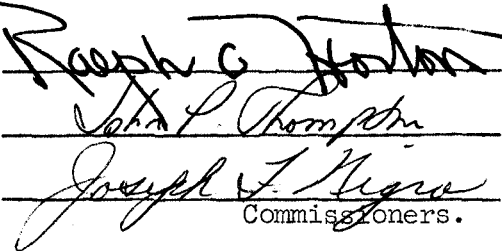 Ralph C Horton
John P. Thompson
Joseph F. Nigro
Commissioners.